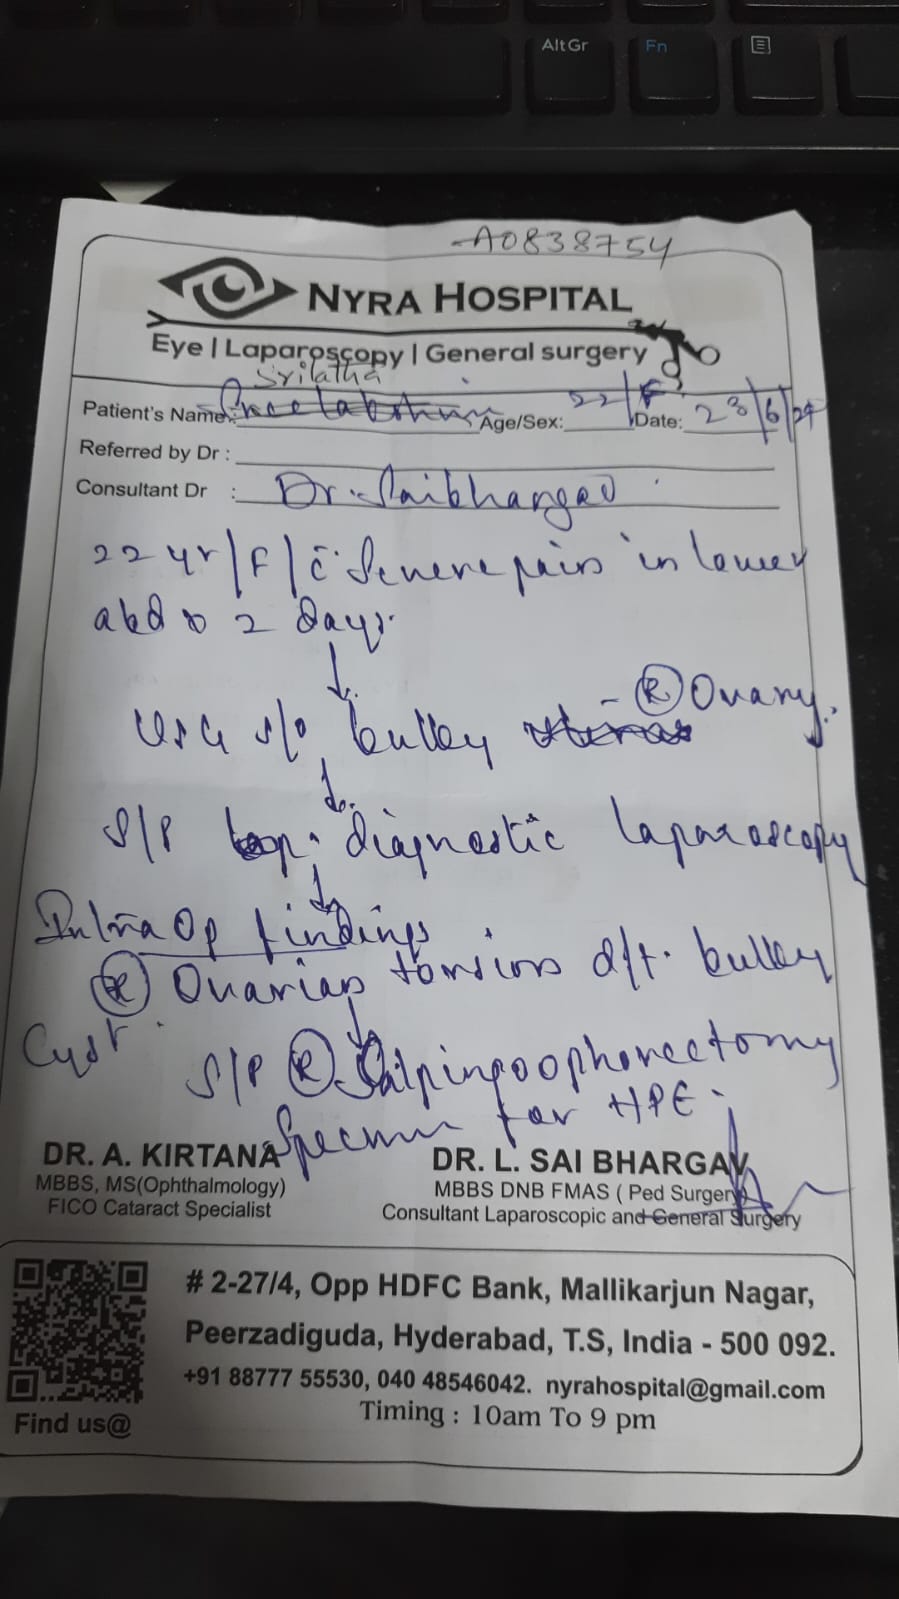 AltGr
Fn
A0838754
NYRA HOSPITAL
Eye | Laparoscopy | General surgery
Srilatha
Patient's Name: Sreelakshmi Age/Sex: 22/F Date: 23/6/24
Referred by Dr :
Consultant Dr : Dr. Saibhargav
22 yr/F/c̄ Severe pain in lower
abd x 2 days.
↓
USG s/o bulky uterus - Ⓡ Ovary.
↓
S/P Lap. diagnostic laparoscopy
↓
Intra Op findings
Ⓡ Ovarian torsion d/t. bulky
Cyst.
↓
S/P Ⓡ Salpingoophorectomy
Specimen for HPE.
DR. A. KIRTANA
MBBS, MS(Ophthalmology)
FICO Cataract Specialist
DR. L. SAI BHARGAV
MBBS DNB FMAS ( Ped Surgery)
Consultant Laparoscopic and General Surgery
# 2-27/4, Opp HDFC Bank, Mallikarjun Nagar,
Peerzadiguda, Hyderabad, T.S, India - 500 092.
+91 88777 55530, 040 48546042. nyrahospital@gmail.com
Timing : 10am To 9 pm
Find us@